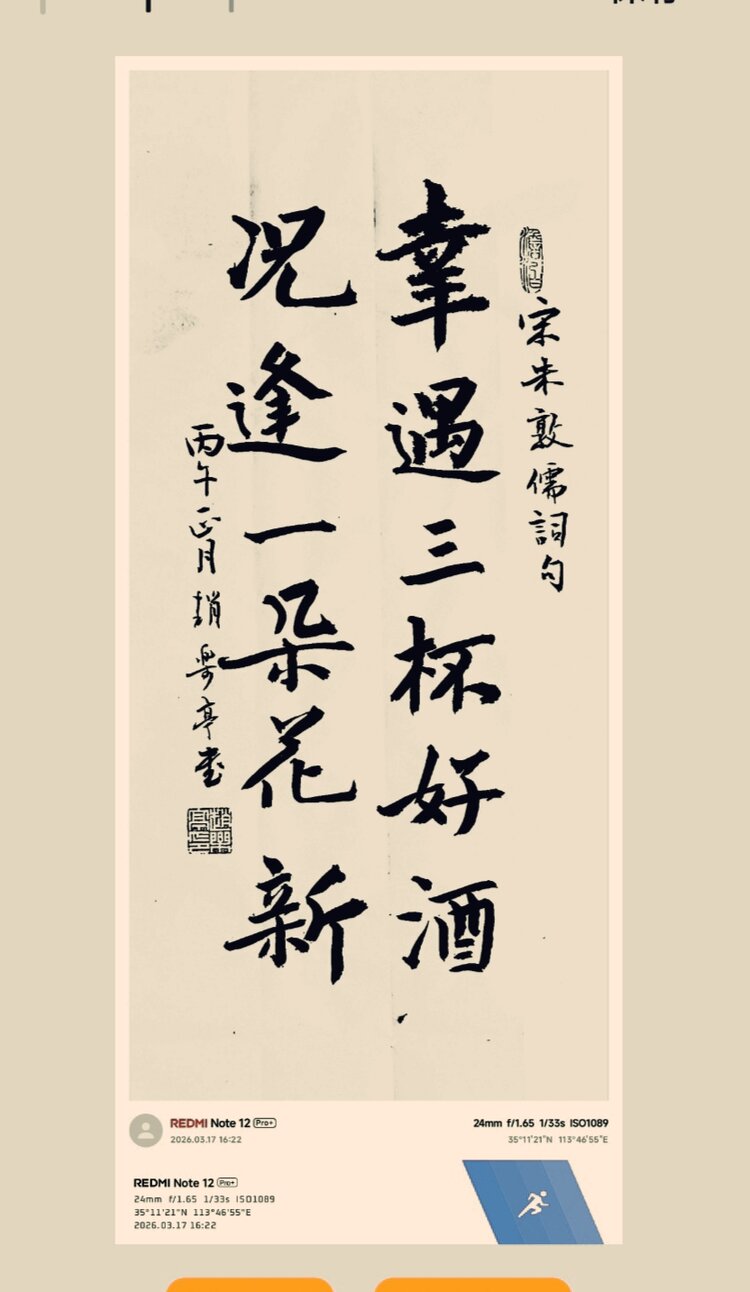 宋朱敦儒詞句
幸遇三杯好酒
况逢一朵花新
丙午正月趙樂亭書
REDMI Note 12 Pro+
2026.03.17 16:22
24mm f/1.65 1/33s ISO1089
35°11'21"N 113°46'55"E
REDMI Note 12 Pro+
24mm f/1.65 1/33s ISO1089
35°11'21"N 113°46'55"E
2026.03.17 16:22